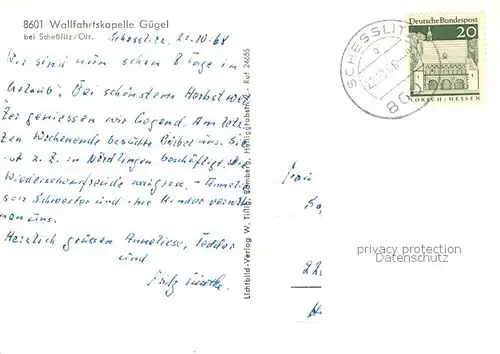 8601 Wallfahrtskapelle Gügel
bei Scheßlitz/Ofr.
Schesslitz, 21.10.68
Wir sind nun schon 8 Tage im
Urlaub. Bei schönstem Herbstwet-
ter geniessen wir Gegend. Am letz-
ten Wochenende besuchte Bärbel uns. Sie
ist z. Z. in Nördlingen beschäftigt. Die
Wiedersehensfreude war gross. - Anneli-
sens Schwester und die Kinder verwöh-
nen uns.
Herzlich grüssen Anneliese, Teddy
und
Fritz
Lichtbild-Verlag W. Bamberg, Heiliggrabstr. Ruf 24655
SCHESSLITZ
Deutsche Bundespost
20
LORSCH/HESSEN
Frau
22
privacy protection
Datenschutz